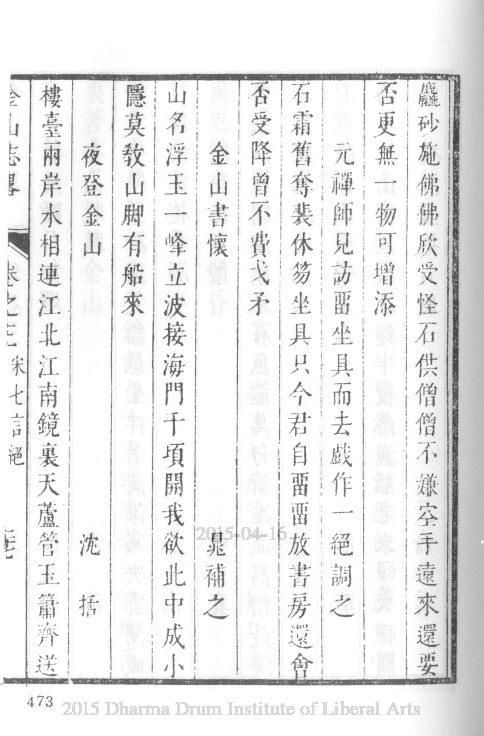 麤砂施佛佛欣受怪石供僧僧不嫌空手遠來還要
否更無一物可增添
元禪師見訪畱坐具而去戲作一絕調之
石霜舊奪裴休笏坐具只今君自畱畱放書房還會
否受降曾不費戈矛
金山書懷 晁補之
山名浮玉一峰立波接海門千頃開我欲此中成小
隱莫敎山脚有船來
夜登金山 沈括
樓臺兩岸水相連江北江南鏡裏天蘆管玉簫齊送
金山志畧 卷之三 宋七言絕
2015-04-16
473
2015 Dharma Drum Institute of Liberal Arts